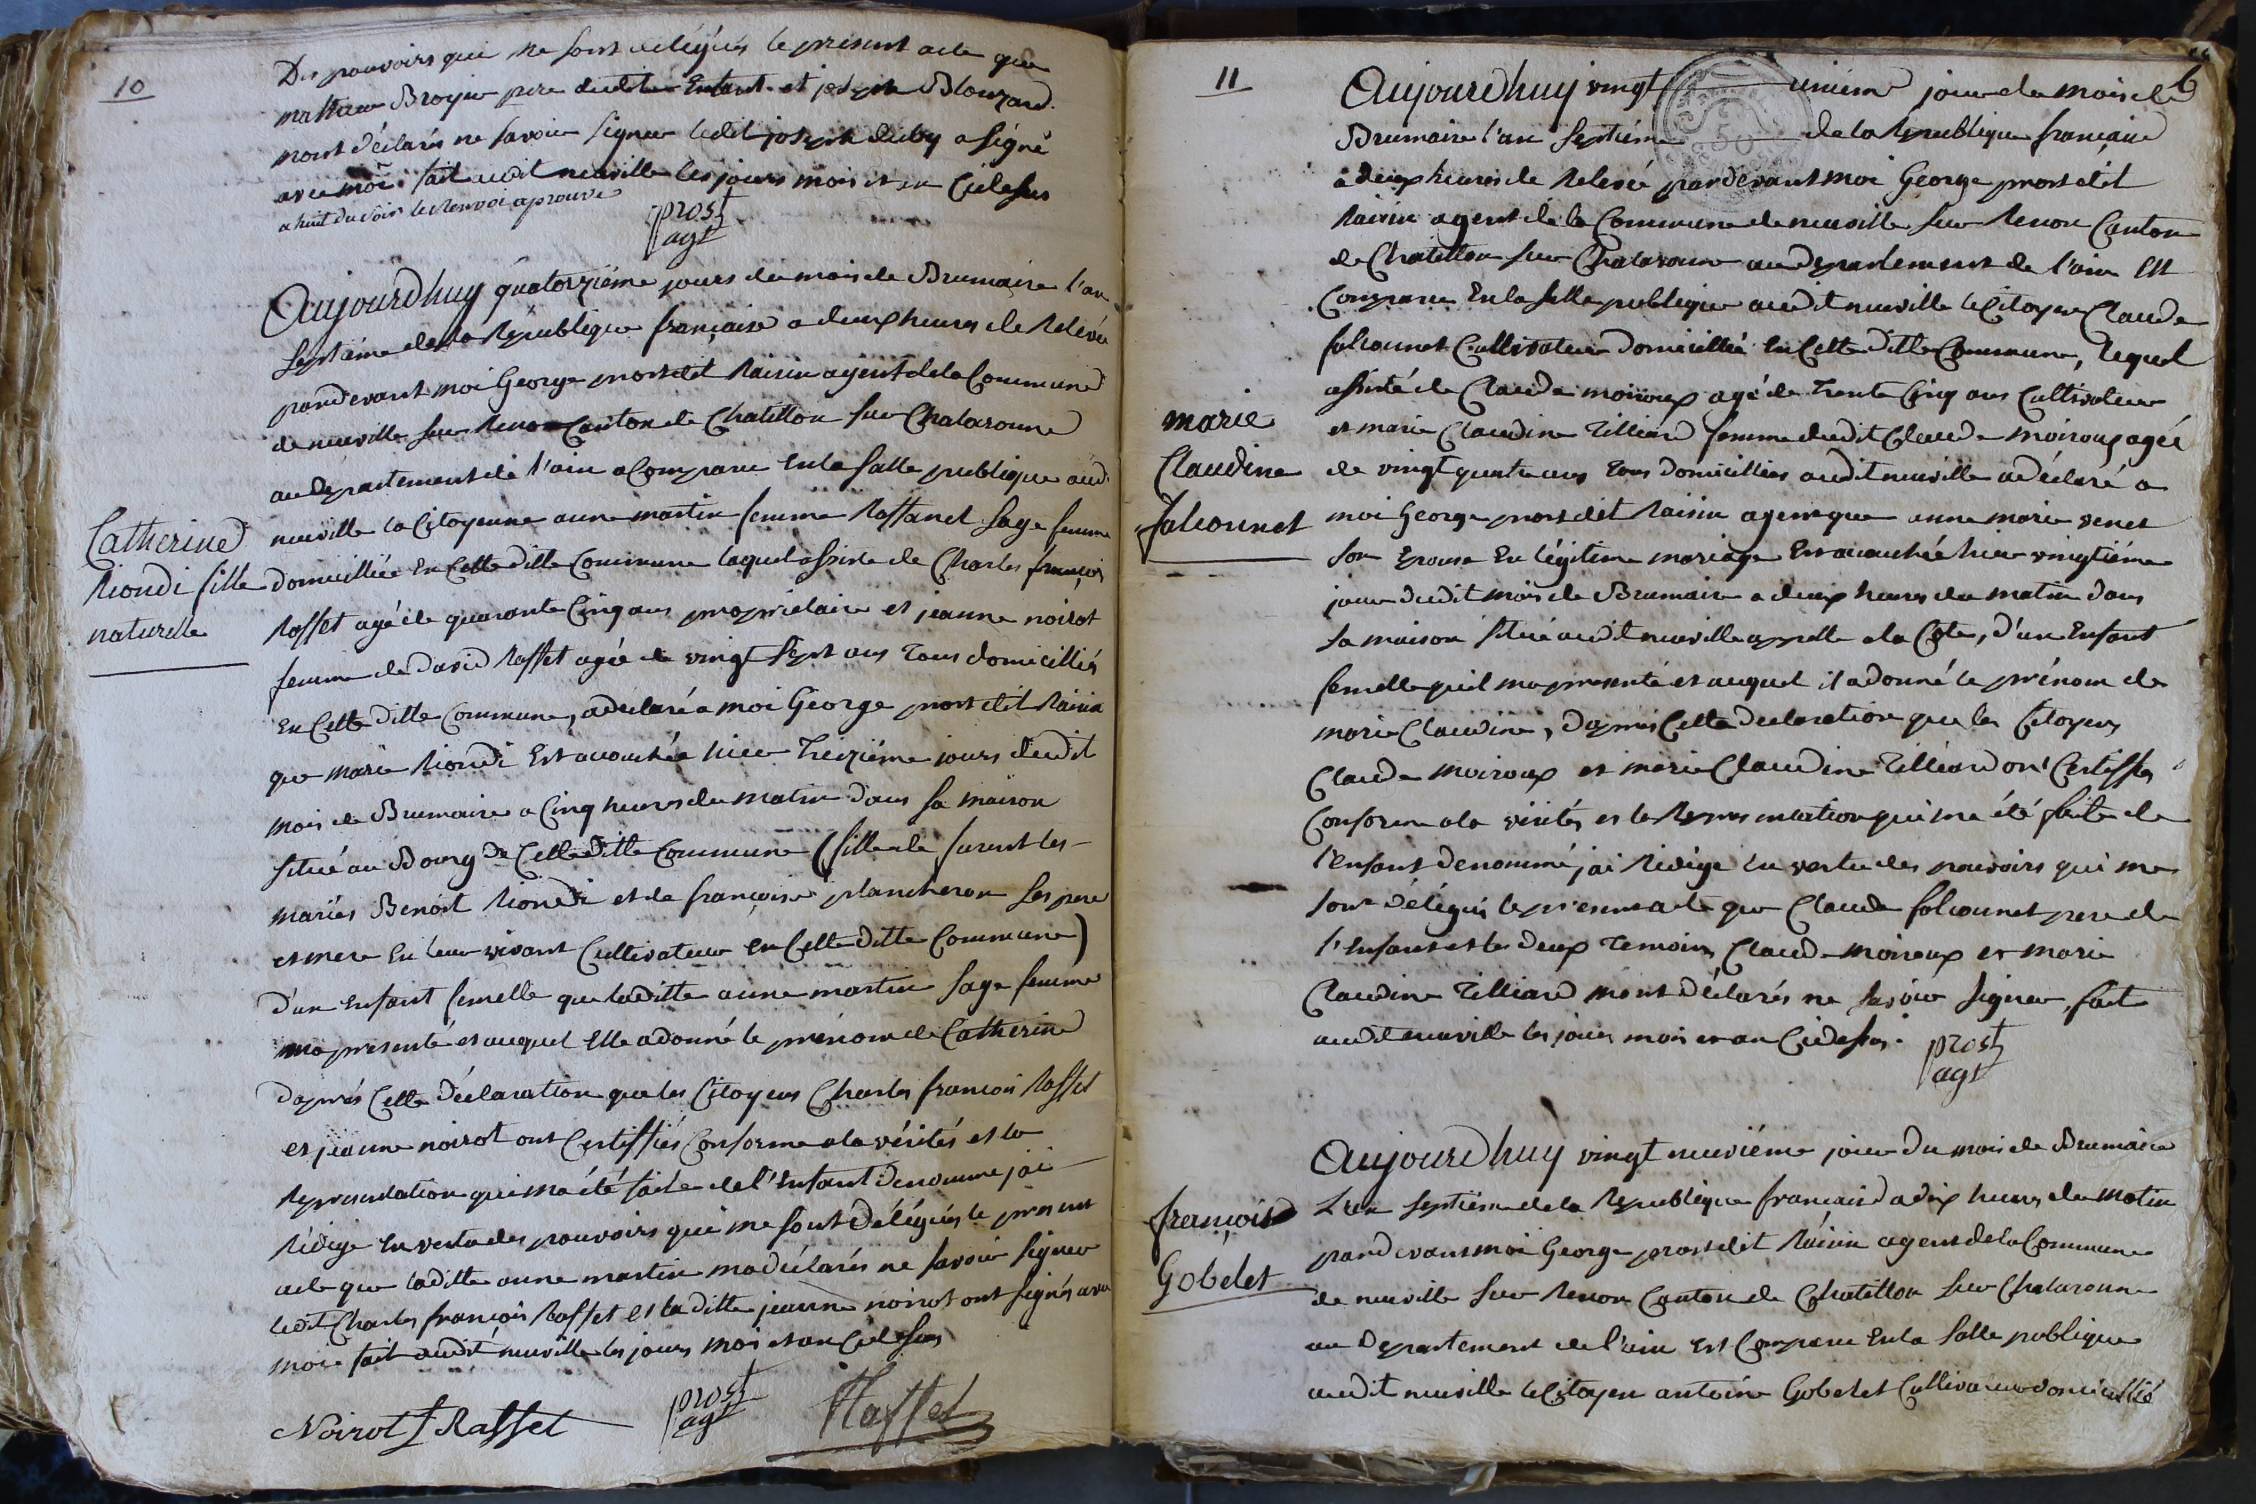 10
Des pouvoirs qui me sont délégués le présent acte que
mathieu Broyer pere dudit Enfant et joseph Blouzard
mont déclarés ne savoir signer ledit joseph duby a signé
avec moi fait audit neuville les jours mois et an Cidessus
a huit du soir le Renvoi aprouvé
prost
agt
Aujourdhuy quatorziéme jours du mois de Brumaire l'an
septiéme de la Republique française a deux heures de Relevée
pardevant moi George prost dit Raisin agent de la Commune
de neuville sur Renon Canton de Chatillon sur Chalaronne
au departement de l'ain a Comparu En la salle publique audit
neuville la Citoyenne anne martin femme Raffanel sage femme
Catherine
Riondi fille
naturelle
domicilliée En Cette ditte Commune laquel assiste de Charles françois
Rasset agé de quarante Cinq ans propriétaire et jeanne noirot
femme de david Rasset agée de vingt sept ans Tous domicilliés
En Cette ditte Commune, a déclaré a moi George prost dit Raisin
que marie Riondi Est acouchée hier Treiziéme jours dudit
mois de Brumaire a Cinq heures du matin dans sa maison
située au Bourg de Cette ditte Commune (fille de furent les
mariés Benoit Riondi et de françoise plancheron ses pere
et mere En leur vivant Cultivateur en Cette ditte Commune)
d'un Enfant femelle que laditte anne martin sage femme
ma presenté et auquel Elle a donné le prénom de Catherine
daprés Cette déclaration que les Citoyens Charles francois Rasset
et jeanne noirot ont Certiffiés Conforme a la vérités et la
Representation qui ma été faite de l'Enfant denommé jai
Rédigé En vertu des pouvoirs qui me sont délégués le present
acte que laditte anne martin ma déclarés ne savoir signer
ledit Charles françois Rasset et laditte jeanne noirot ont signés avec
moi fait audit neuville les jours mois et an Cidessus
Noirot f Rasset
prost
agt
Rasset
11
6
Aujourdhuy vingt uniéme jour du mois de
Brumaire l'an septiéme de la Republique française
a deux heures de Relevée pardevant moi George prost dit
Raisin agent de la Commune de neuville sur Renon Canton
de Chatillon sur Chalaronne au departement de l'ain Est
Comparu En la salle publique audit neuville le Citoyen Claude
falconnet Cultivateur domicillié En Cette ditte Commune, lequel
assisté de Claude moiroux agé de Trente Cinq ans Cultivateur
et marie Claudine Tilliard femme dudit Claude moiroux agée
marie
Claudine
falconnet
de vingt quatre ans Tous domicilliés audit neuville a déclaré a
moi George prost dit Raisin agent que anne marie venet
son Epouse En légitime mariage Est acouchée hier vingtiéme
jour dudit mois de Brumaire a deux heures du matin dans
sa maison situé audit neuville appelle a la Cote, d'un Enfant
femelle quil ma presenté et auquel il a donné le prénom de
marie Claudine, daprés Cette declaration que les Citoyens
Claude moiroux et marie Claudine Tilliard ont Certiffés
Conforme a la vérités et la Representation qui ma été faite de
l'enfant denommé jai Rédigé En vertu des pouvoirs qui me
sont délégués le présent acte que Claude falconnet pere de
l'Enfant et les deux Temoins Claude moiroux et marie
Claudine Tilliard mont déclarés ne savoir signer, fait
audit neuville les jours mois et an Cidessus.
prost
agt
Aujourdhuy vingt neuviéme jour du mois de Brumaire
françois
Gobelet
L'an septiéme de la Republique française a dix heures du matin
pardevant moi George prost dit Raisin agent de la Commune
de neuville sur Renon Canton de Chatillon sur Chalaronne
au Departement de l'ain Est Comparu En la salle publique
audit neuville le Citoyen antoine Gobelet Cultivateur domicillié